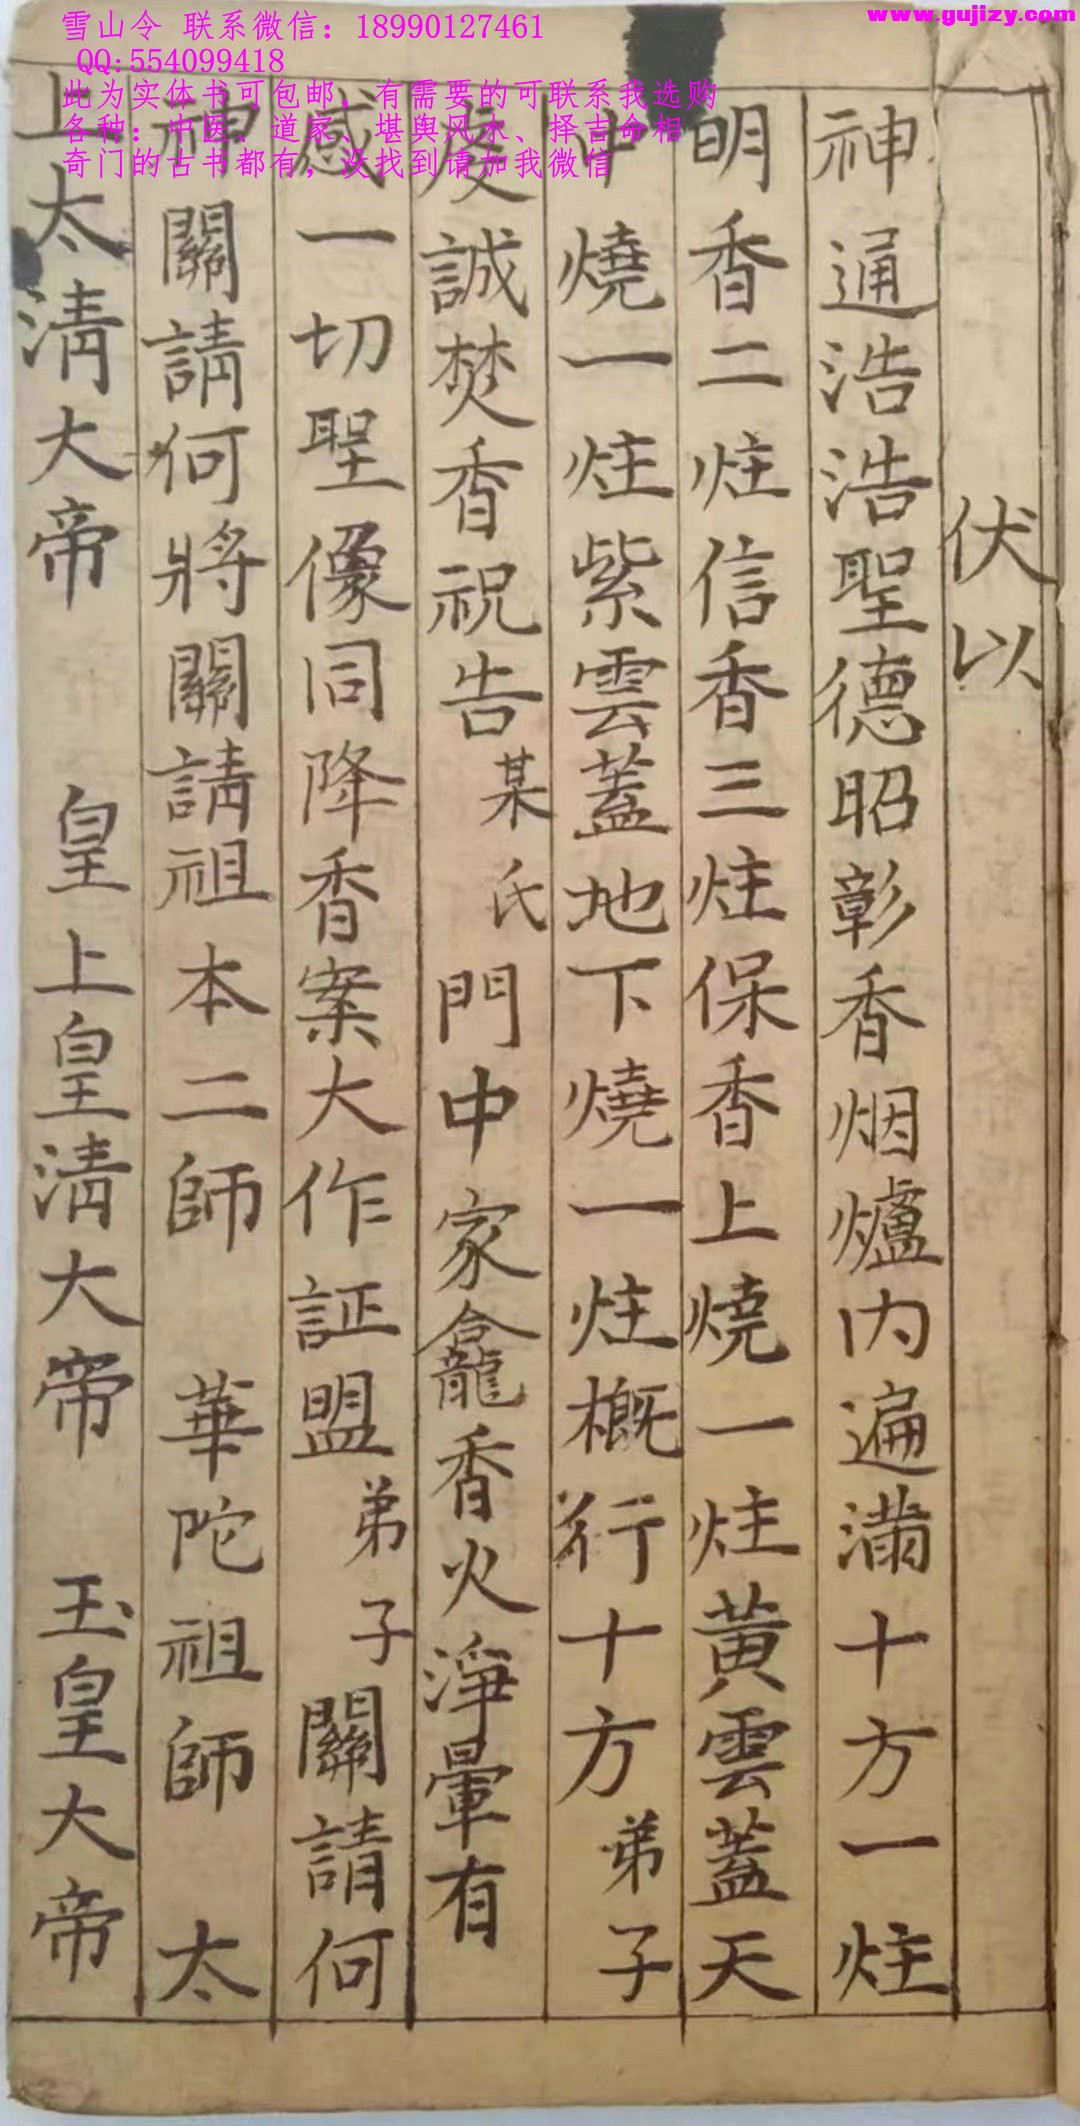 www.gujizy.com
雪山令 联系微信：18990127461
QQ:554099418
此为实体书可包邮，有需要的可联系我选购
各种：中医、道家、堪舆风水、择吉命相
奇门的古书都有，没找到请加我微信
伏以
神通浩浩聖德昭彰香烟爐內遍滿十方一炷
明香二炷信香三炷保香上燒一炷黃雲蓋天
中燒一炷紫雲蓋地下燒一炷概行十方弟子
虔誠焚香祝告某氏門中家龕香火淨暈有
感一切聖像同降香案大作証盟弟子關請何
神關請何將關請祖本二師 華陀祖師 太
上太清大帝 皇上皇清大帝 玉皇大帝